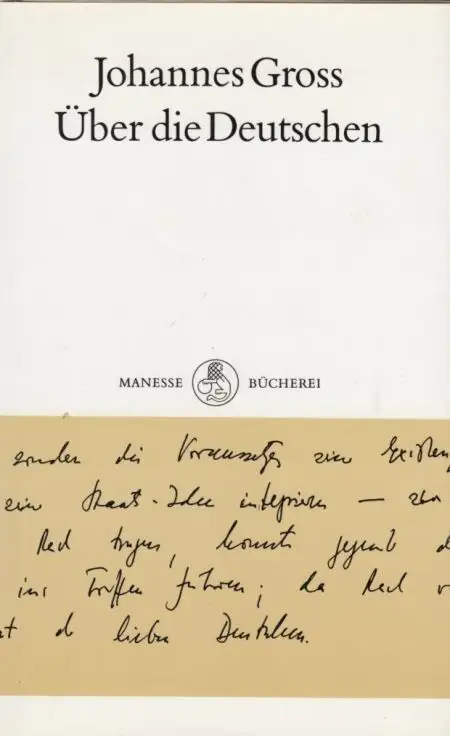 Johannes Gross
Über die Deutschen
MANESSE BÜCHEREI
sondern die Voraussetzg seiner Existenz
seine Staats-Idee integrieren —
Red tragen, konnte gegenüb d
ins Treffen führen; der Red
d lieben Deutschen.